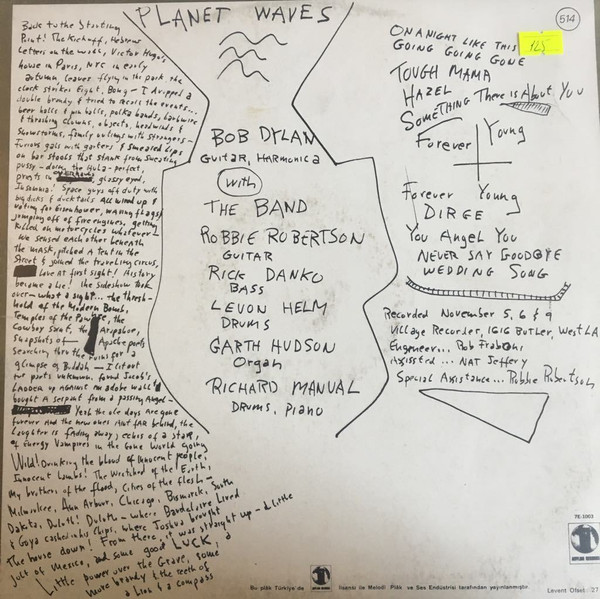 PLANET WAVES
514
125
Back to the Starting
Point! The Kickoff, Hebrew
Letters on the wall, Victor Hugo's
house in Paris, NYC in early
autumn, leaves flying in the park, the
clock strikes Eight, Bong — I dropped a
double brandy & tried to recall the events...
beer halls & pin balls, polka bands, barbwire
& thrashing clowns, objects, headwinds &
snowstorms, family outings with strangers —
Furious gals with garters & smeared lips
on bar stools that stank from sweating
pussy — doing the Hula — perfect,
priests in glassy eyed,
Insomnia! Space guys off duty with
big dicks & duck tails All wired up &
voting for Eisenhower, waving flags &
jumping off of fire engines, getting
killed on motorcycles whatever —
we sensed each other beneath
the mask, pitched a tent in the
Street & joined the traveling circus,
love at first sight! History
became a lie! the sideshow took
over — what a sight... the thresh-
hold of the Modern Bomb,
Temples of the Pawnee, the
Cowboy Saint, the Arapahoe,
Snapshots of Apache poets
Searching thru the ruins for a
glimpse of Buddah — I lit out
for parts unknown, found Jacob's
Ladder up against an adobe wall &
bought a serpent from a passing Angel —
Yeah the ole days are gone
forever And the new ones Aint fAR behind, the
Laughter is fAding away, echos of a staR,
of Energy Vampires in the Gone World going
Wild! Drinking the blood of innocent people,
Innocent Lambs! The Wretched of the Earth,
My brothers of the flood, Cities of the flesh —
Milwaukee, Ann Arbor, Chicago, Bismarck, South
Dakota, Duluth! Duluth — where Baudelaire Lived
& Goya cashed in his Chips, where Joshua brought
The house down! From there, it was straight up — a little
jolt of Mexico, and some good LUCK, a
Little power over the Grave, some
more brandy & the teeth of
a Lion & a compass
BOB DYLAN
Guitar, Harmonica
with
THE BAND
ROBBIE ROBERTSON
GUITAR
RICK DANKO
BASS
LEVON HELM
DRUMS
GARTH HUDSON
Organ
RICHARD MANUAL
DRUMS, PIANO
ON A NIGHT LIKE THIS
GOING GOING GONE
TOUGH MAMA
HAZEL
SOMETHING There is About You
Forever Young
Forever Young
DIRGE
You Angel You
NEVER SAY GOODBYE
WEDDING SONG
Recorded November 5, 6 & 9
Village Recorder, 1616 Butler, West LA
Engineer... Rob Fraboni
Assisted... NAT Jeffery
Special Assistance... Robbie Robertson
7E-1003
ASYLUM RECORDS
Bu plâk Türkiye'de
lisansı ile Melodi Plâk ve Ses Endüstrisi tarafından yayınlanmıştır.
Levent Ofset 27